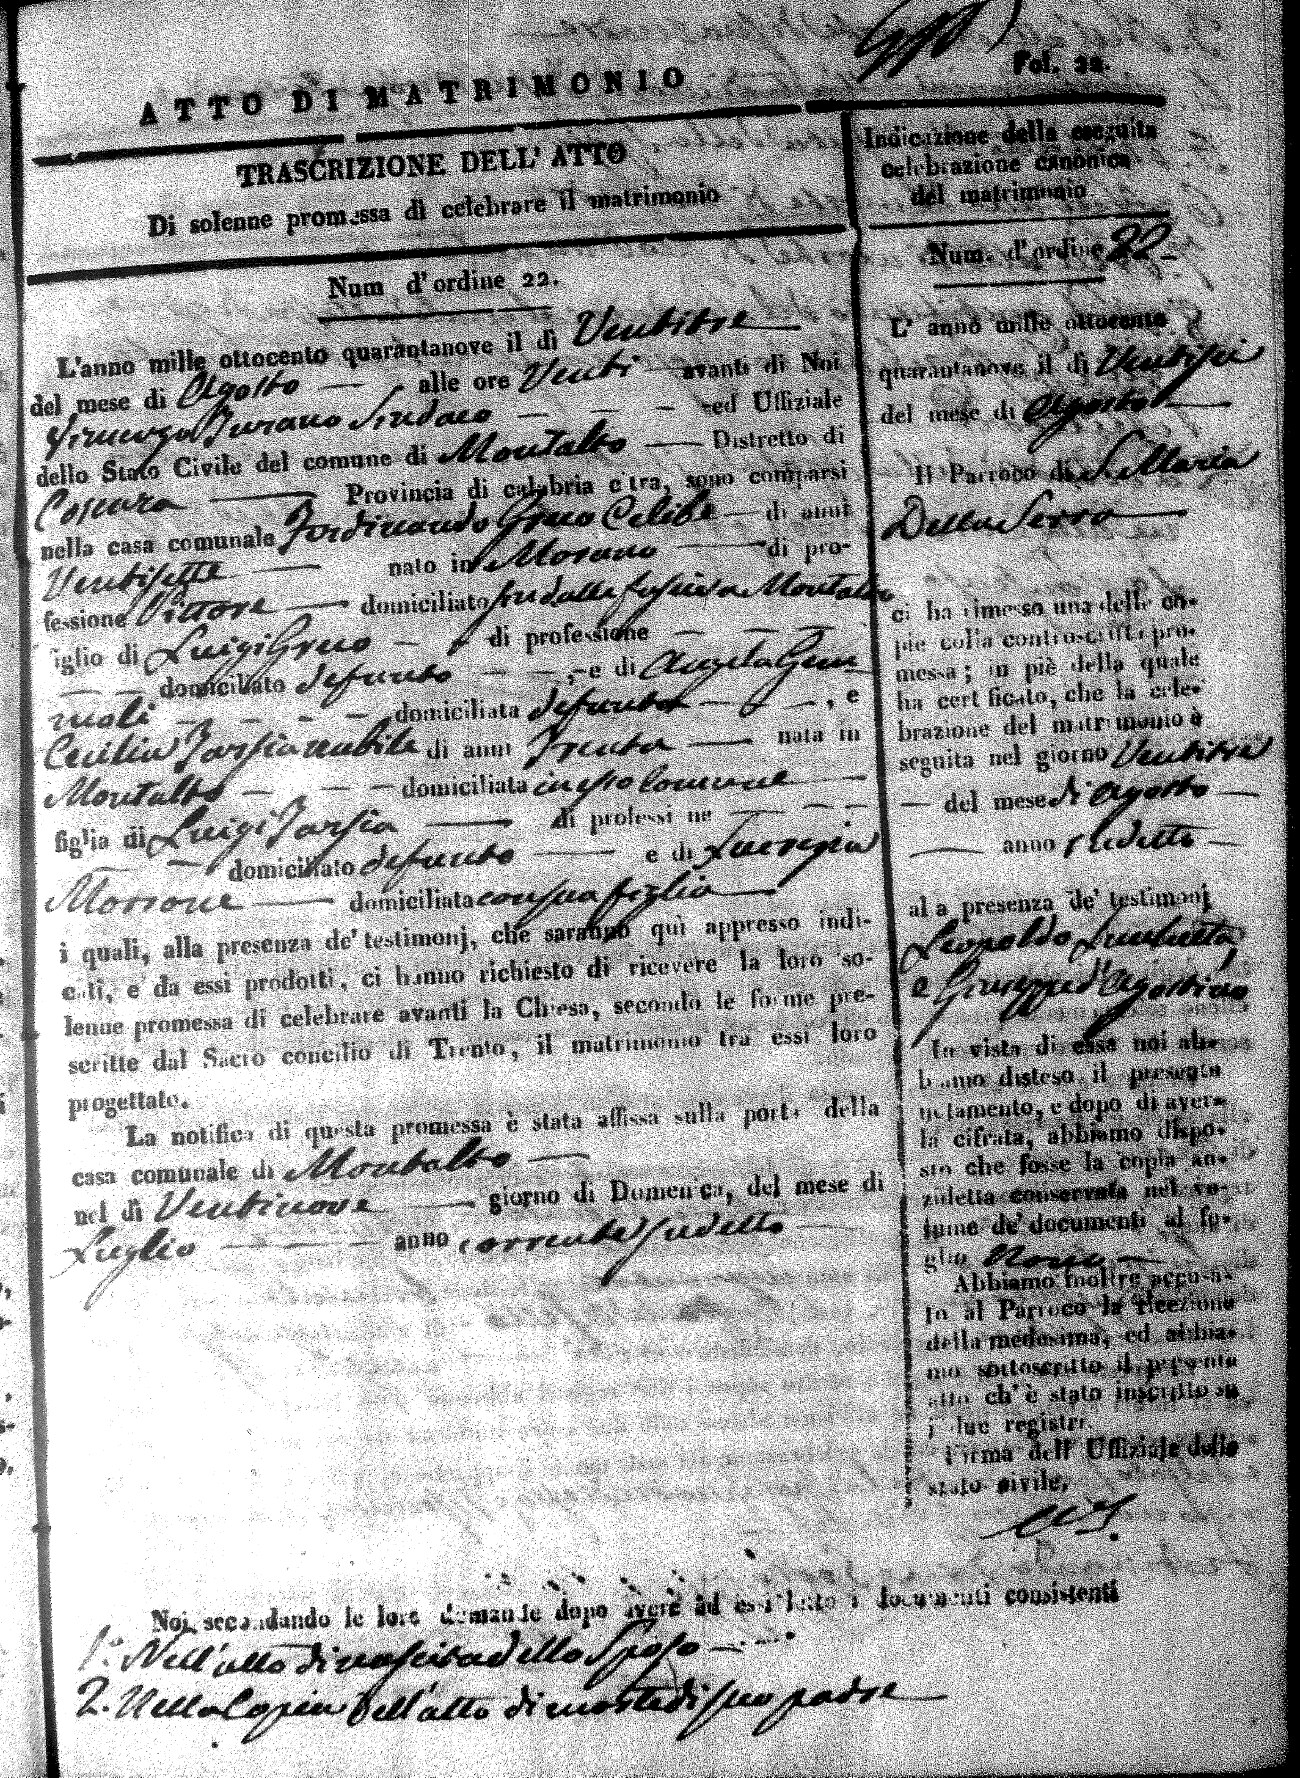 Fol. 22.
ATTO DI MATRIMONIO
TRASCRIZIONE DELL' ATTO
Di solenne promessa di celebrare il matrimonio
Num d' ordine 22.
L'anno mille ottocento quarantanove il dì Ventitre
del mese di Agosto alle ore Venti avanti di Noi
Sindaco ed Uffiziale
dello Stato Civile del comune di Montalto Distretto di
Cosenza Provincia di calabria citra, sono comparsi
nella casa comunale Ferdinando Greco Celibe di anni
Ventisette nato in Morano di pro-
fessione Pittore domiciliato Montalto
figlio di Luigi Greco di professione
domiciliato defunto , e di Angela Gem
mali domiciliata defunta , e
Cecilia Parsia nubile di anni Trenta nata in
Montalto domiciliata in esso Comune
figlia di Luigi Parsia di professi ne
domiciliato defunto e di Lucrezia
Morrone domiciliata con sua figlia
i quali, alla presenza de' testimonj, che saranno quì appresso indi-
cati, e da essi prodotti, ci hanno richiesto di ricevere la loro so-
lenne promessa di celebrare avanti la Chiesa, secondo le forme pre-
scritte dal Sacro concilio di Trento, il matrimonio tra essi loro
progettato.
La notifica di questa promessa è stata affissa sulla porta della
casa comunale di Montalto
nel dì Ventinove giorno di Domenica, del mese di
Luglio anno corrente sudetto
Indicazione della eseguita
celebrazione canonica
del matrimonio
Num. d' ordine 22
L' anno mille ottocento
quarantanove il dì Ventisei
del mese di Agosto
Il Parroco di S. Maria
Della Serra
ci ha rimesso una delle co-
pie colla controscritta pro-
messa; in piè della quale
ha cert ficato, che la cele-
brazione del matrimonio è
seguita nel giorno Ventitre
del mese di Agosto
anno sudetto
al a presenza de' testimonj
Leopoldo
e Giuseppe d'Agostino
In vista di essa noi ab-
biamo disteso il presente
notamento, e dopo di aver-
la cifrata, abbiamo dispo-
sto che fosse la copia an-
zidetta conservata nel vo-
lume de' documenti al fo-
glio Nono
Abbiamo inoltre accusa-
to al Parroco la ricezione
della medesima, ed abbia-
mo sottoscritto il presente
atto ch' è stato inscritto su
i due registri.
Firma dell' Uffiziale dello
stato civile,
Noi, secondando le loro domande dopo avere ad essi letto i documenti consistenti
1.° Nell'atto di nascita dello Sposo
2. Nella Copia dell'atto di morte di suo padre